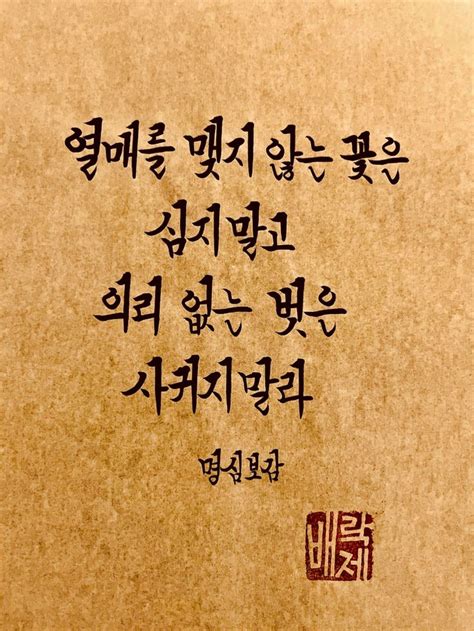 열매를 맺지 않는 꽃은
심지말고
의리 없는 벗은
사귀지말라
명심보감
배락제